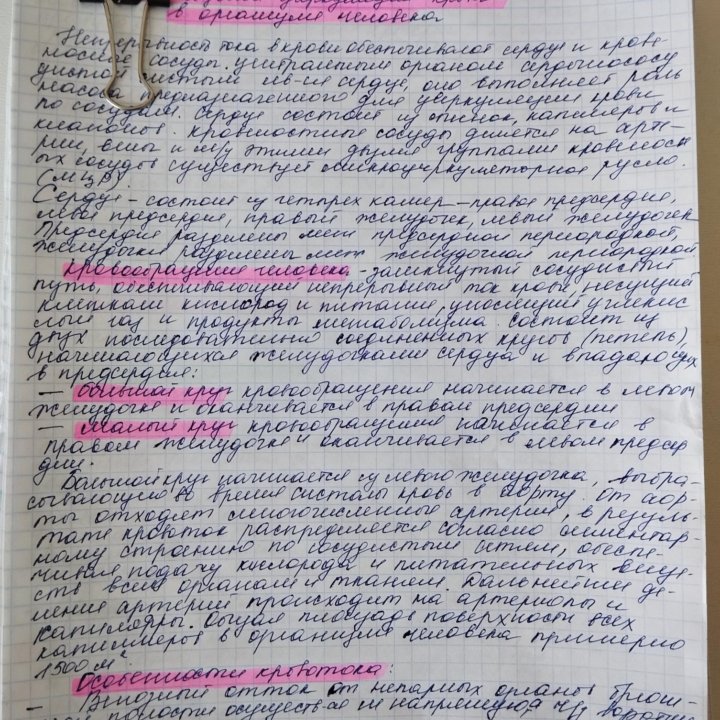 в организме человека
Непрерывность тока в крови обеспечивают сердце и крове-
носные сосуды. центральным органом сердечнососу
дистой системы яв-ся сердце, оно выполняет роль
насоса предназначенного для циркуляции крови
по сосудам. Сердце состоит из стенок, капилляров и
клапонов. Кровеностные сосуды делятся на арте-
рии, вены и м/у этими двумя группами кровеносн
ых сосудов существует микроциркуляторное русло.
(МЦР).
Сердце - состоит из четырех камер - правое предсердие,
левое предсердие, правый желудочек, левый желудочек
Предсердия разделены меж предсердной перегородкой,
желудочки разделены меж желудочной перегородкой
Кровообращение человека - замкнутый сосудистый
путь, обеспечивающий непрерывный ток крови, несущий
клеткам кислород и питание, уносящий углекис
лый газ и продукты метаболизма. Состоит из
двух последовательно соединенных кругов (петель),
начинающихся желудочками сердца и впадающих
в предсердия:
- большой круг кровообращения начинается в левом
желудочке и оканчивается в правом предсердии
- малый круг кровообращения начинается в
правом желудочке и оканчивается в левом предсер
дии.
Большой круг начинается из левого желудочка, выбра-
сывающего во время систолы кровь в аорту. От аор-
ты отходят многочисленные артерии, в резуль-
тате кровоток распределяется согласно сегментар-
ному строению по сосудистым сетям, обеспе-
чивая подачу кислорода и питательных веще-
ств всем органам и тканям. Дальнейшее де-
ление артерий происходит на артериолы и
капилляры. Общая площадь поверхности всех
капилляров в организме человека примерно
1500 м²
Особенности кровотока:
- Венозный отток от непарных органов брюш-
ной полости осуществ-ся не напрямую,а ч/з